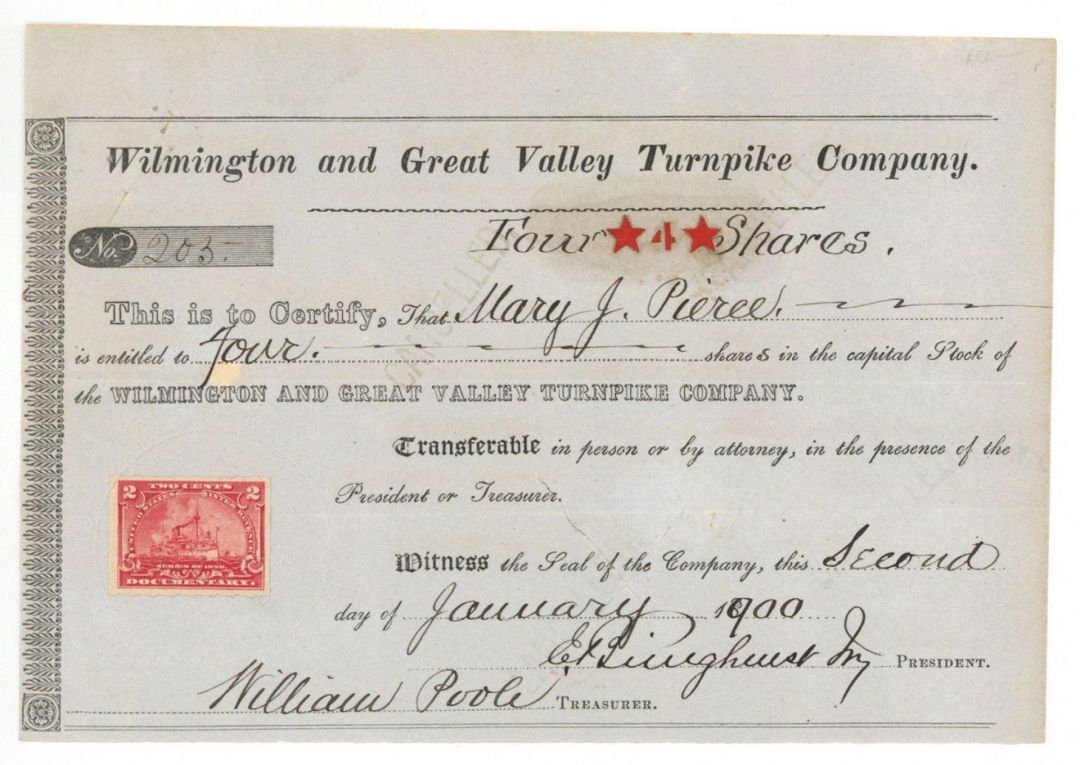 Wilmington and Great Valley Turnpike Company.
No. 205.
Four ★ 4 ★ Shares.
This is to Certify, That Mary J. Pierce.
is entitled to Four. shares in the capital Stock of
the WILMINGTON AND GREAT VALLEY TURNPIKE COMPANY.
Transferable in person or by attorney, in the presence of the
President or Treasurer.
TWO CENTS
2 2
UNITED STATES INTER. REVENUE
SERIES OF 1898
DOCUMENTARY.
Witness the Seal of the Company, this Second
day of January 1900
PRESIDENT.
William Poole TREASURER.
CANCELLED